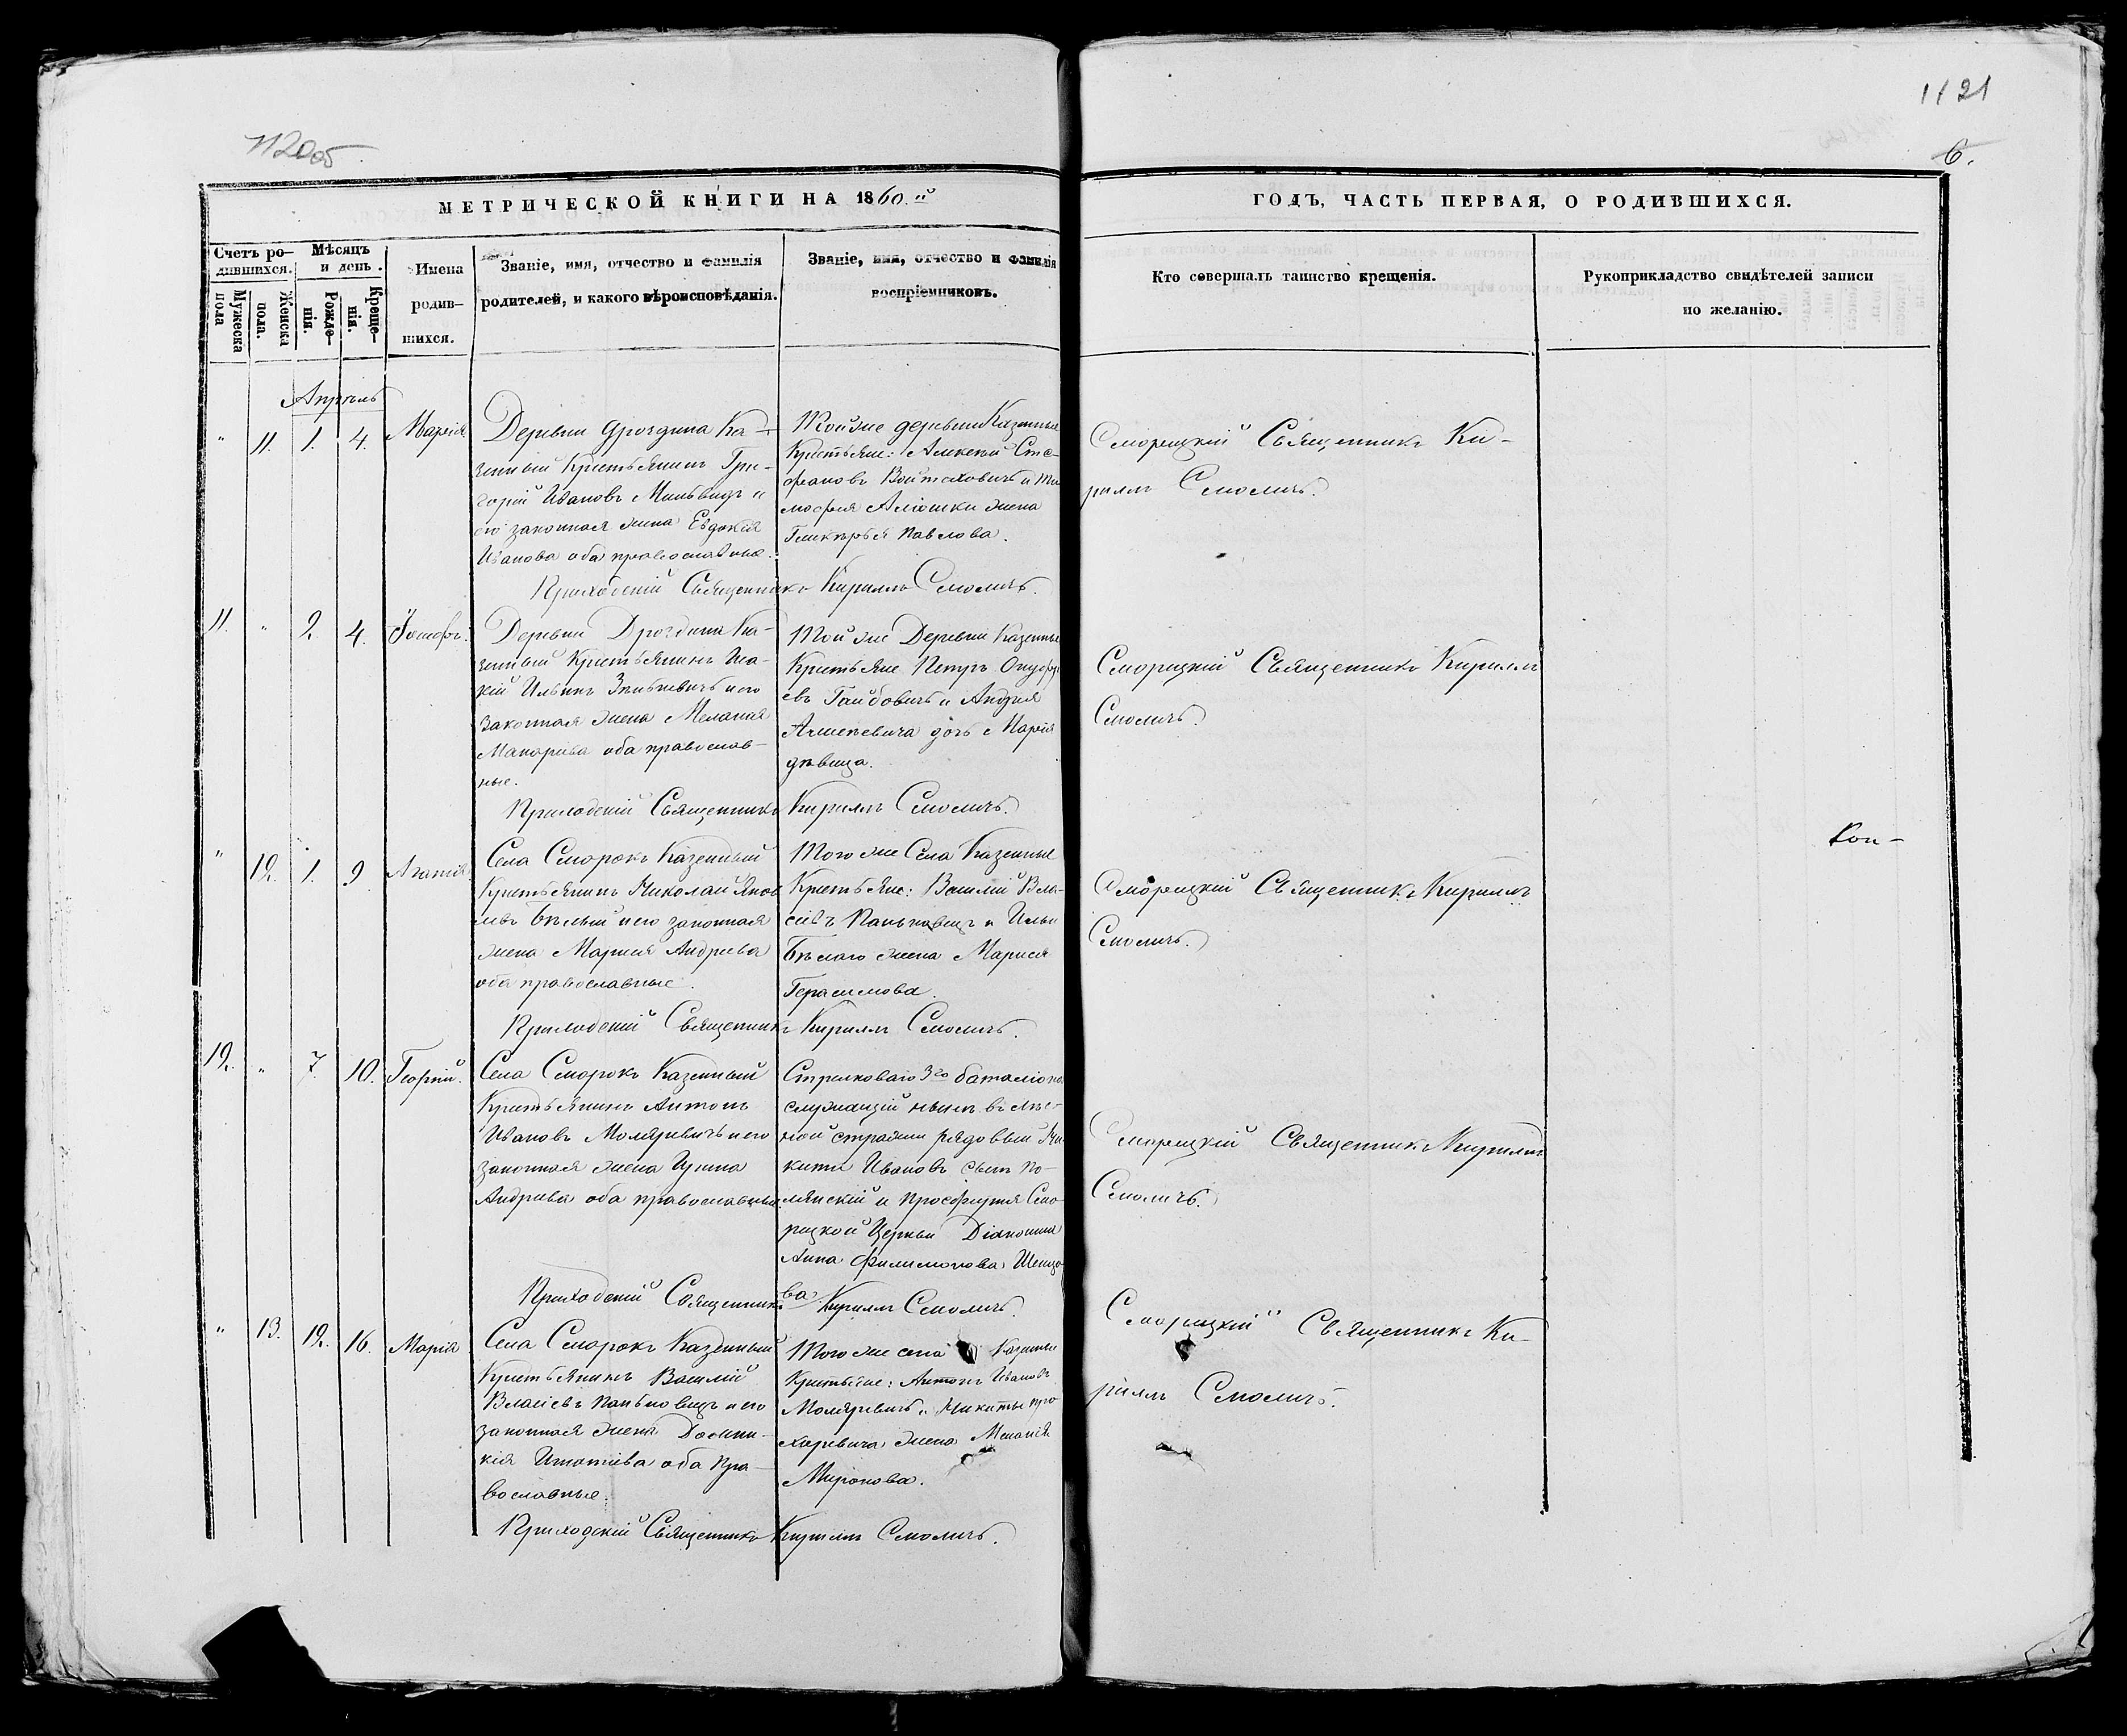 1121
6.
МЕТРИЧЕСКОЙ КНИГИ НА 1860.й
ГОДЪ, ЧАСТЬ ПЕРВАЯ, О РОДИВШИХСЯ.
Счетъ ро-
дившихся.
Мужеска
пола
Женска
пола.
Мѣсяцъ
и день.
Рожде-
нія.
Креще-
нія.
Имена
родив-
шихся.
Званіе, имя, отчество и фамилія
родителей, и какого вѣроисповѣданія.
Званіе, имя, отчество и фамилія
воспріемниковъ.
Кто совершалъ таинство крещенія.
Рукоприкладство свидѣтелей записи
по желанію.
Апрѣль
" 11. 1. 4. Марія
Деревни Дроздина Ка-
зенный Крестьянинъ Гри-
горій Ивановъ и
его законная жена Евдокія
Иванова оба православные.
Той же деревни Казенные
Крестьяне: Алексѣй Сте-
фановъ Войтеховичъ и Ти
мофея Алюшки жена
Гликерья Павлова.
Сморицкій Священникъ Ки-
риллъ Смоличъ.
Приходскій Священникъ Кириллъ Смоличъ.
11. " 2. 4. Іосифъ.
Деревни Дроздина Ка-
зенный Крестьянинъ
Ильинъ и его
законная жена Меланія
Макарьева оба православ-
ные.
Той же Деревни Казенные
Крестьяне Петръ
евъ Гайдовичъ и Андрея
дочь Марія
дѣвица.
Сморицкій Священникъ Кириллъ
Смоличъ.
Приходскій Священникъ Кириллъ Смоличъ.
Кон-
" 12. 1. 9. Агапія
Села Сморокъ Казенный
Крестьянинъ Николай Яков
левъ Бѣлый и его законная
жена Марія Андреева
оба православные.
Того же Села Казенные
Крестьяне: Василій Вла-
сіевъ Паньковецъ и Ильи
Бѣлаго жена Марися
Герасимова.
Сморицкій Священникъ Кириллъ
Смоличъ.
Приходскій Священникъ Кириллъ Смоличъ.
12. " 7. 10. Георгій.
Села Сморокъ Казенный
Крестьянинъ Антонъ
Ивановъ Моляревичъ и его
законная жена
Андреева оба православные.
Стрелковаго 3го баталіона
служащій нынѣ въ лѣс-
ной стражи рядовый Ни
кита Ивановъ сынъ По-
лянскій и Просфирня Смо-
рицкой Церкви Діаконица
Анна Филимонова Шенцо
ва
Сморицкій Священникъ Кириллъ
Смоличъ.
Приходскій Священникъ Кириллъ Смоличъ.
" 13. 12. 16. Марія
Села Сморокъ Казенный
Крестьянинъ Василій
Власіевъ Паньковецъ и его
законная жена Домни-
кія Игнатіева оба Пра-
вославные.
Того же села Казенные
Крестьяне: Антонъ Ивановъ
Моляревичъ и Никиты Про
хоревича жена Меланія
Миронова.
Сморицкій Священникъ Ки-
риллъ Смоличъ.
Приходскій Священникъ Кириллъ Смоличъ.